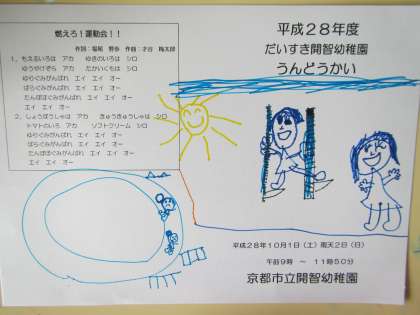 燃えろ！運動会！！
作詞 堀尾 野歩 作曲 才谷 梅太郎
1、もえるいろは アカ ゆきのいろは シロ
ゆうやけぞら アカ たかいくもは シロ
ゆりぐみがんばれ エイ エイ オー
ばらぐみがんばれ エイ エイ オー
たんぽぽぐみがんばれ エイ エイ オー
エイ エイ オー
2、しょうぼうしゃは アカ きゅうきゅうしゃは シロ
トマトのいろ アカ ソフトクリーム シロ
ゆりぐみがんばれ エイ エイ オー
ばらぐみがんばれ エイ エイ オー
たんぽぽぐみがんばれ エイ エイ オー
エイ エイ オー
平成２８年度
だいすき開智幼稚園
うんどうかい
平成28年10月1日（土）雨天2日（日）
午前９時 ～ １１時５０分
京都市立開智幼稚園